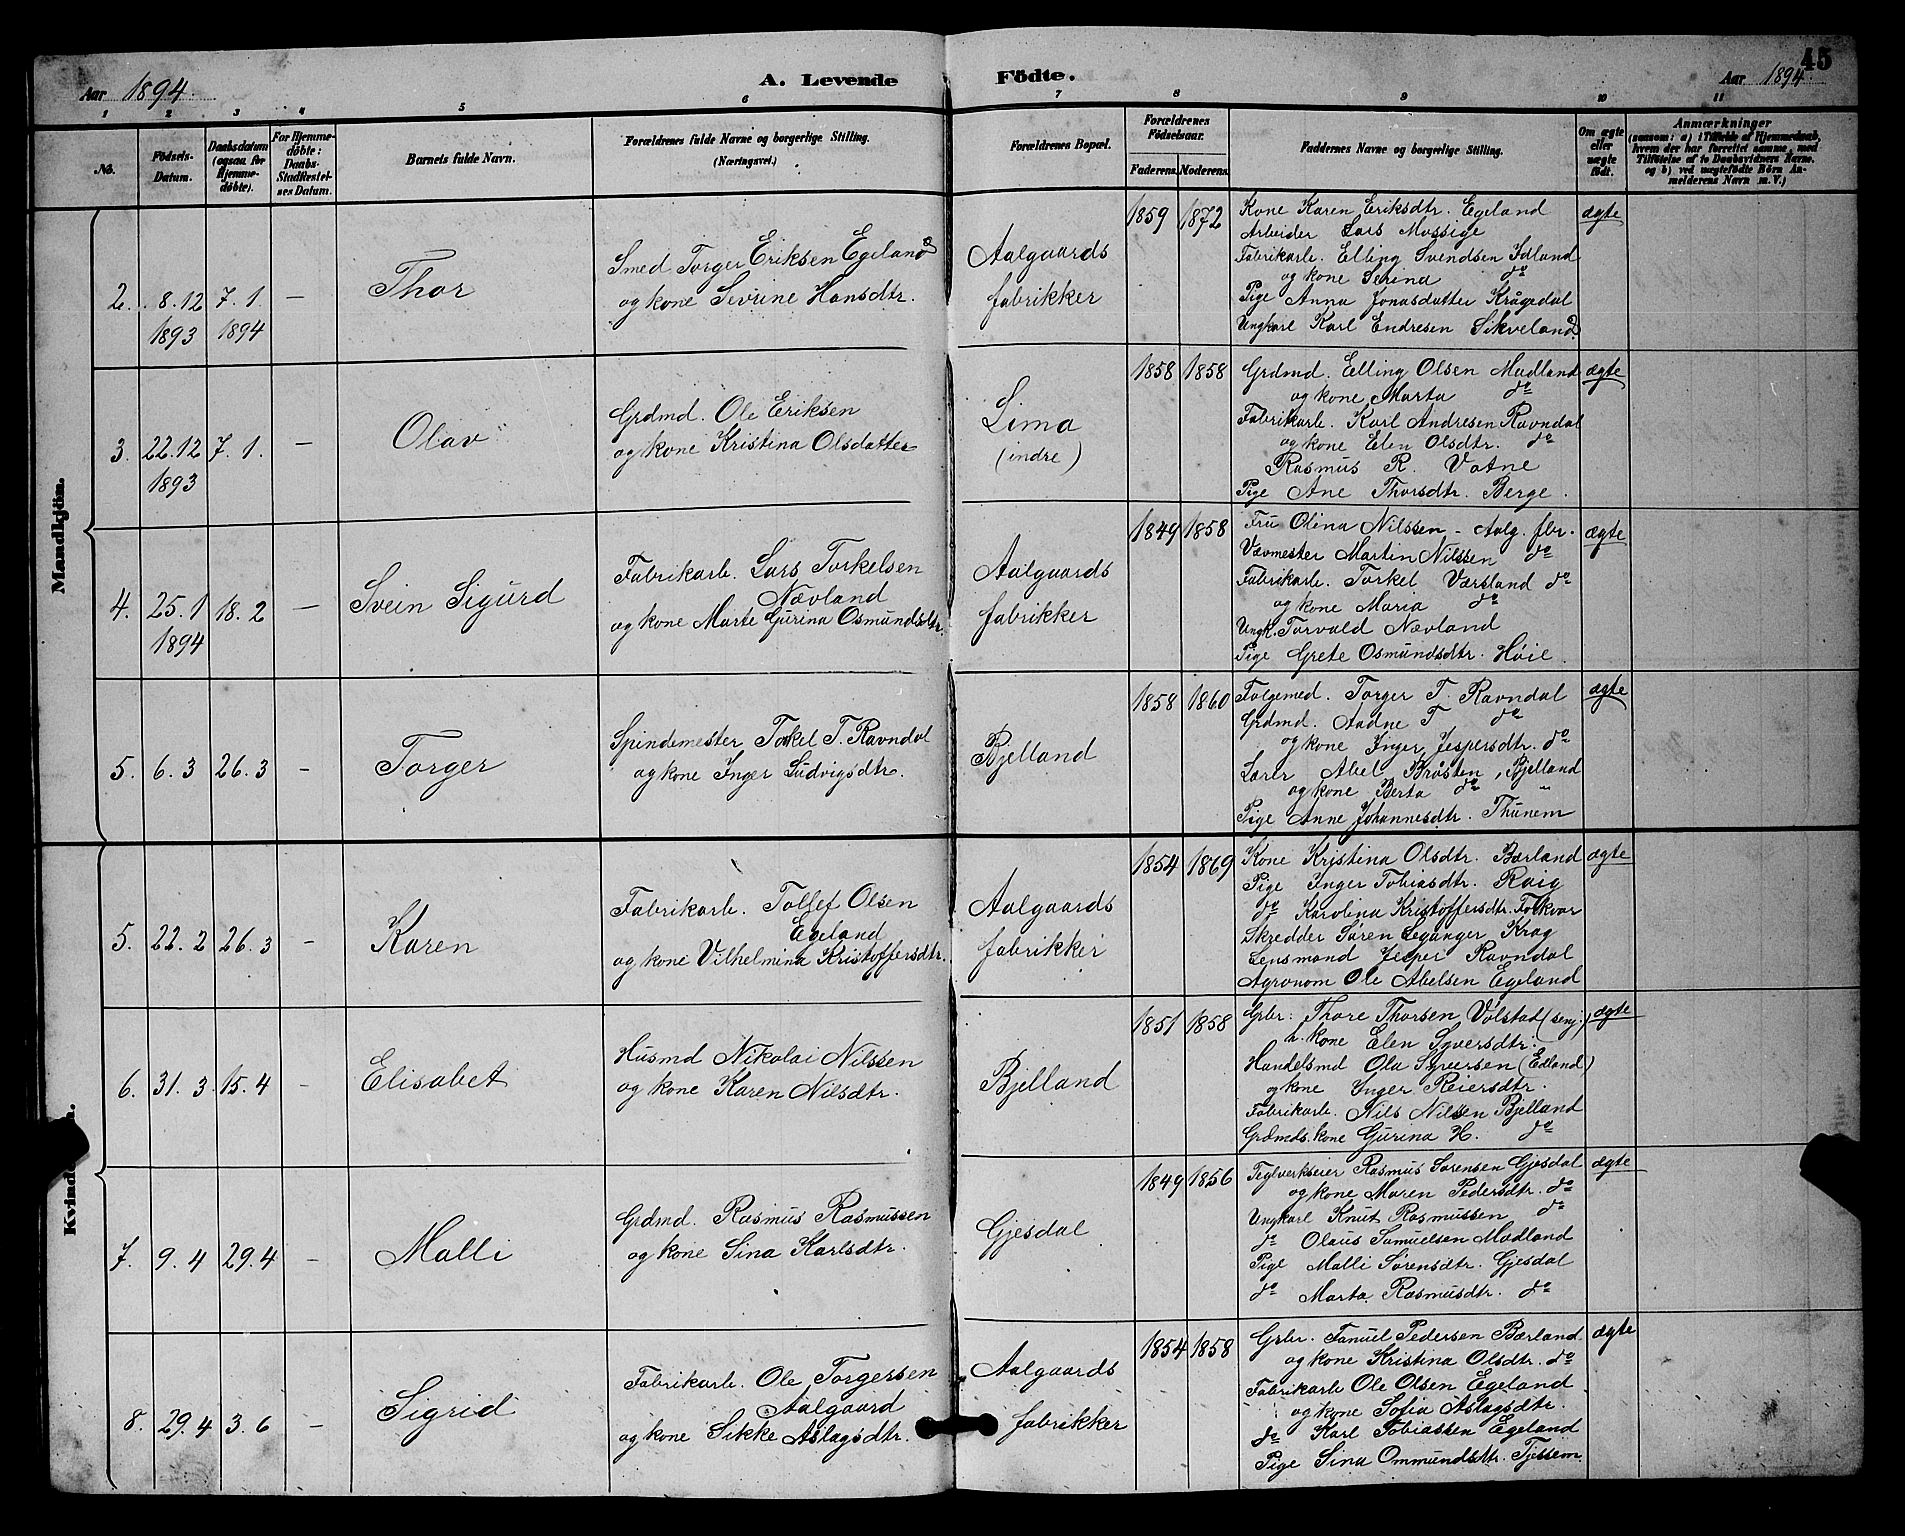 45
Aar 1894
A. Levende Födte.
Aar 1894
1 2 3 4 5 6 7 8 9 10 11
No.
Födsels-Datum.
Daabsdatum (ogsaa for Hjemme-döbte).
For Hjemme-döbte: Daabs-Stadfæstel-ses Datum.
Barnets fulde Navn.
Forældrenes fulde Navne og borgerlige Stilling. (Næringsvei.)
Forældrenes Bopæl.
Forældrenes Födselsaar.
Faderens. Moderens.
Faddernes Navne og borgerlige Stilling.
Om ægte eller uægte födt.
Anmærkninger
(saasom: a) i Tilfælde af Hjemmedaab, hvem der har forrettet samme, med Tilföielse af to Daabsvidners Navne, og b) ved uægtefödte Börn Anmelderens Navn m. V.)
Mandkjön.
2. 8.12 1893 7.1. 1894 — Thor
Smed Torger Eriksen Egeland
og kone Sevrine Hansdtr.
Aalgaards
fabrikker
1859 1872
Kone Karen Eriksdtr. Egeland
Arbeider Lars Mossige
Fabrikarb. Elling Svendsen Idland
og kone Serina do
Pige Anna Jonasdatter Krågedal
Ungkarl Karl Endresen Sikveland
ægte
3. 22.12 1893 7.1. — Olav
Grdmd. Ole Eriksen
og kone Kristina Olsdatter
Lima
(indre)
1858 1858
Grdmd. Elling Olsen Madland
og kone Marta do
Fabrikarb. Karl Andresen Ravndal
og kone Elen Olsdtr. do
Rasmus R. Vatne
Pige Ane Thorsdtr. Berge.
ægte
4. 25.1 1894 18.2 — Svein Sigurd
Fabrikarb. Lars Torkelsen
Nævland
og kone Marte Gurina Osmundsdtr.
Aalgaards
fabrikker
1849 1858
Fru Olina Nilssen - Aalg. fbr.
Vævmester Martin Nilssen do
Fabrikarb. Torkel Værsland do
og kone Maria do
Ungk. Torvald Nævland
Pige Grete Osmundsdtr. Høie
ægte
5. 6.3 26.3 - Torger
Spindemester Torkel T. Ravndal
og kone Inger Ludvigsdtr.
Bjelland
1858 1860
Folgemd. Torger T. Ravndal
Grdmd. Aadne T do
og kone Inger Jespersdtr. do
Lærer Abel Bråsten, Bjelland
og kone Berta do "
Pige Anne Johannesdtr. Thunem
ægte
5. 22.2 26.3 - Karen
Fabrikarb. Tollef Olsen
Egeland
og kone Vilhelmina Kristoffersdtr.
Aalgaards
fabrikker
1854 1869
Kone Kristina Olsdtr. Bærland
Pige Inger Tobiasdtr. Raig
do Karolina Kristoffersdtr. Folkvor
Skredder Sören Leganger Krag
Lensmand Jesper Ravndal
Agronom Ole Abelsen Egeland
ægte
6. 31.3 15.4 - Elisabet
Husmd Nikolai Nilssen
og kone Karen Nilsdtr.
Bjelland
1851 1858
Grbr. Thore Thorsen Vølstad (senj.)
h. kone Elen Syversdtr.
Handelsmd Ola Syversen (Edland)
og kone Inger Reiersdtr.
Fabrikarb. Nils Nilsen Bjelland
Grdmds. kone Gurina H. do
ægte
7. 9.4 29.4 - Malli
Grdmd. Rasmus Rasmussen
og kone Sina Karlsdtr.
Gjesdal
1849 1856
Teglverkseier Rasmus Sørensen Gjesdal
og kone Maren Pedersdtr. do
Ungkarl Knut Rasmussen do
do Olaus Samuelsen Madland
Pige Malli Sørensdtr. Gjesdal
do Marta Rasmusdtr. do
ægte
8. 29.4 3.6 - Sigrid
Fabrikarb. Ole Torgersen
Aalgaard
og kone Sikke Aslagsdtr.
Aalgaards
fabrikker
1854 1858
Grbr. Fanuel Pedersen Bærland
og kone Kristina Olsdtr. do
Fabrikarb Ole Olsen Egeland
og kone Sofia Aslagsdtr.
do Karl Tobiassen Egeland
Pige Sina Ommundsdtr. Tjessem
ægte